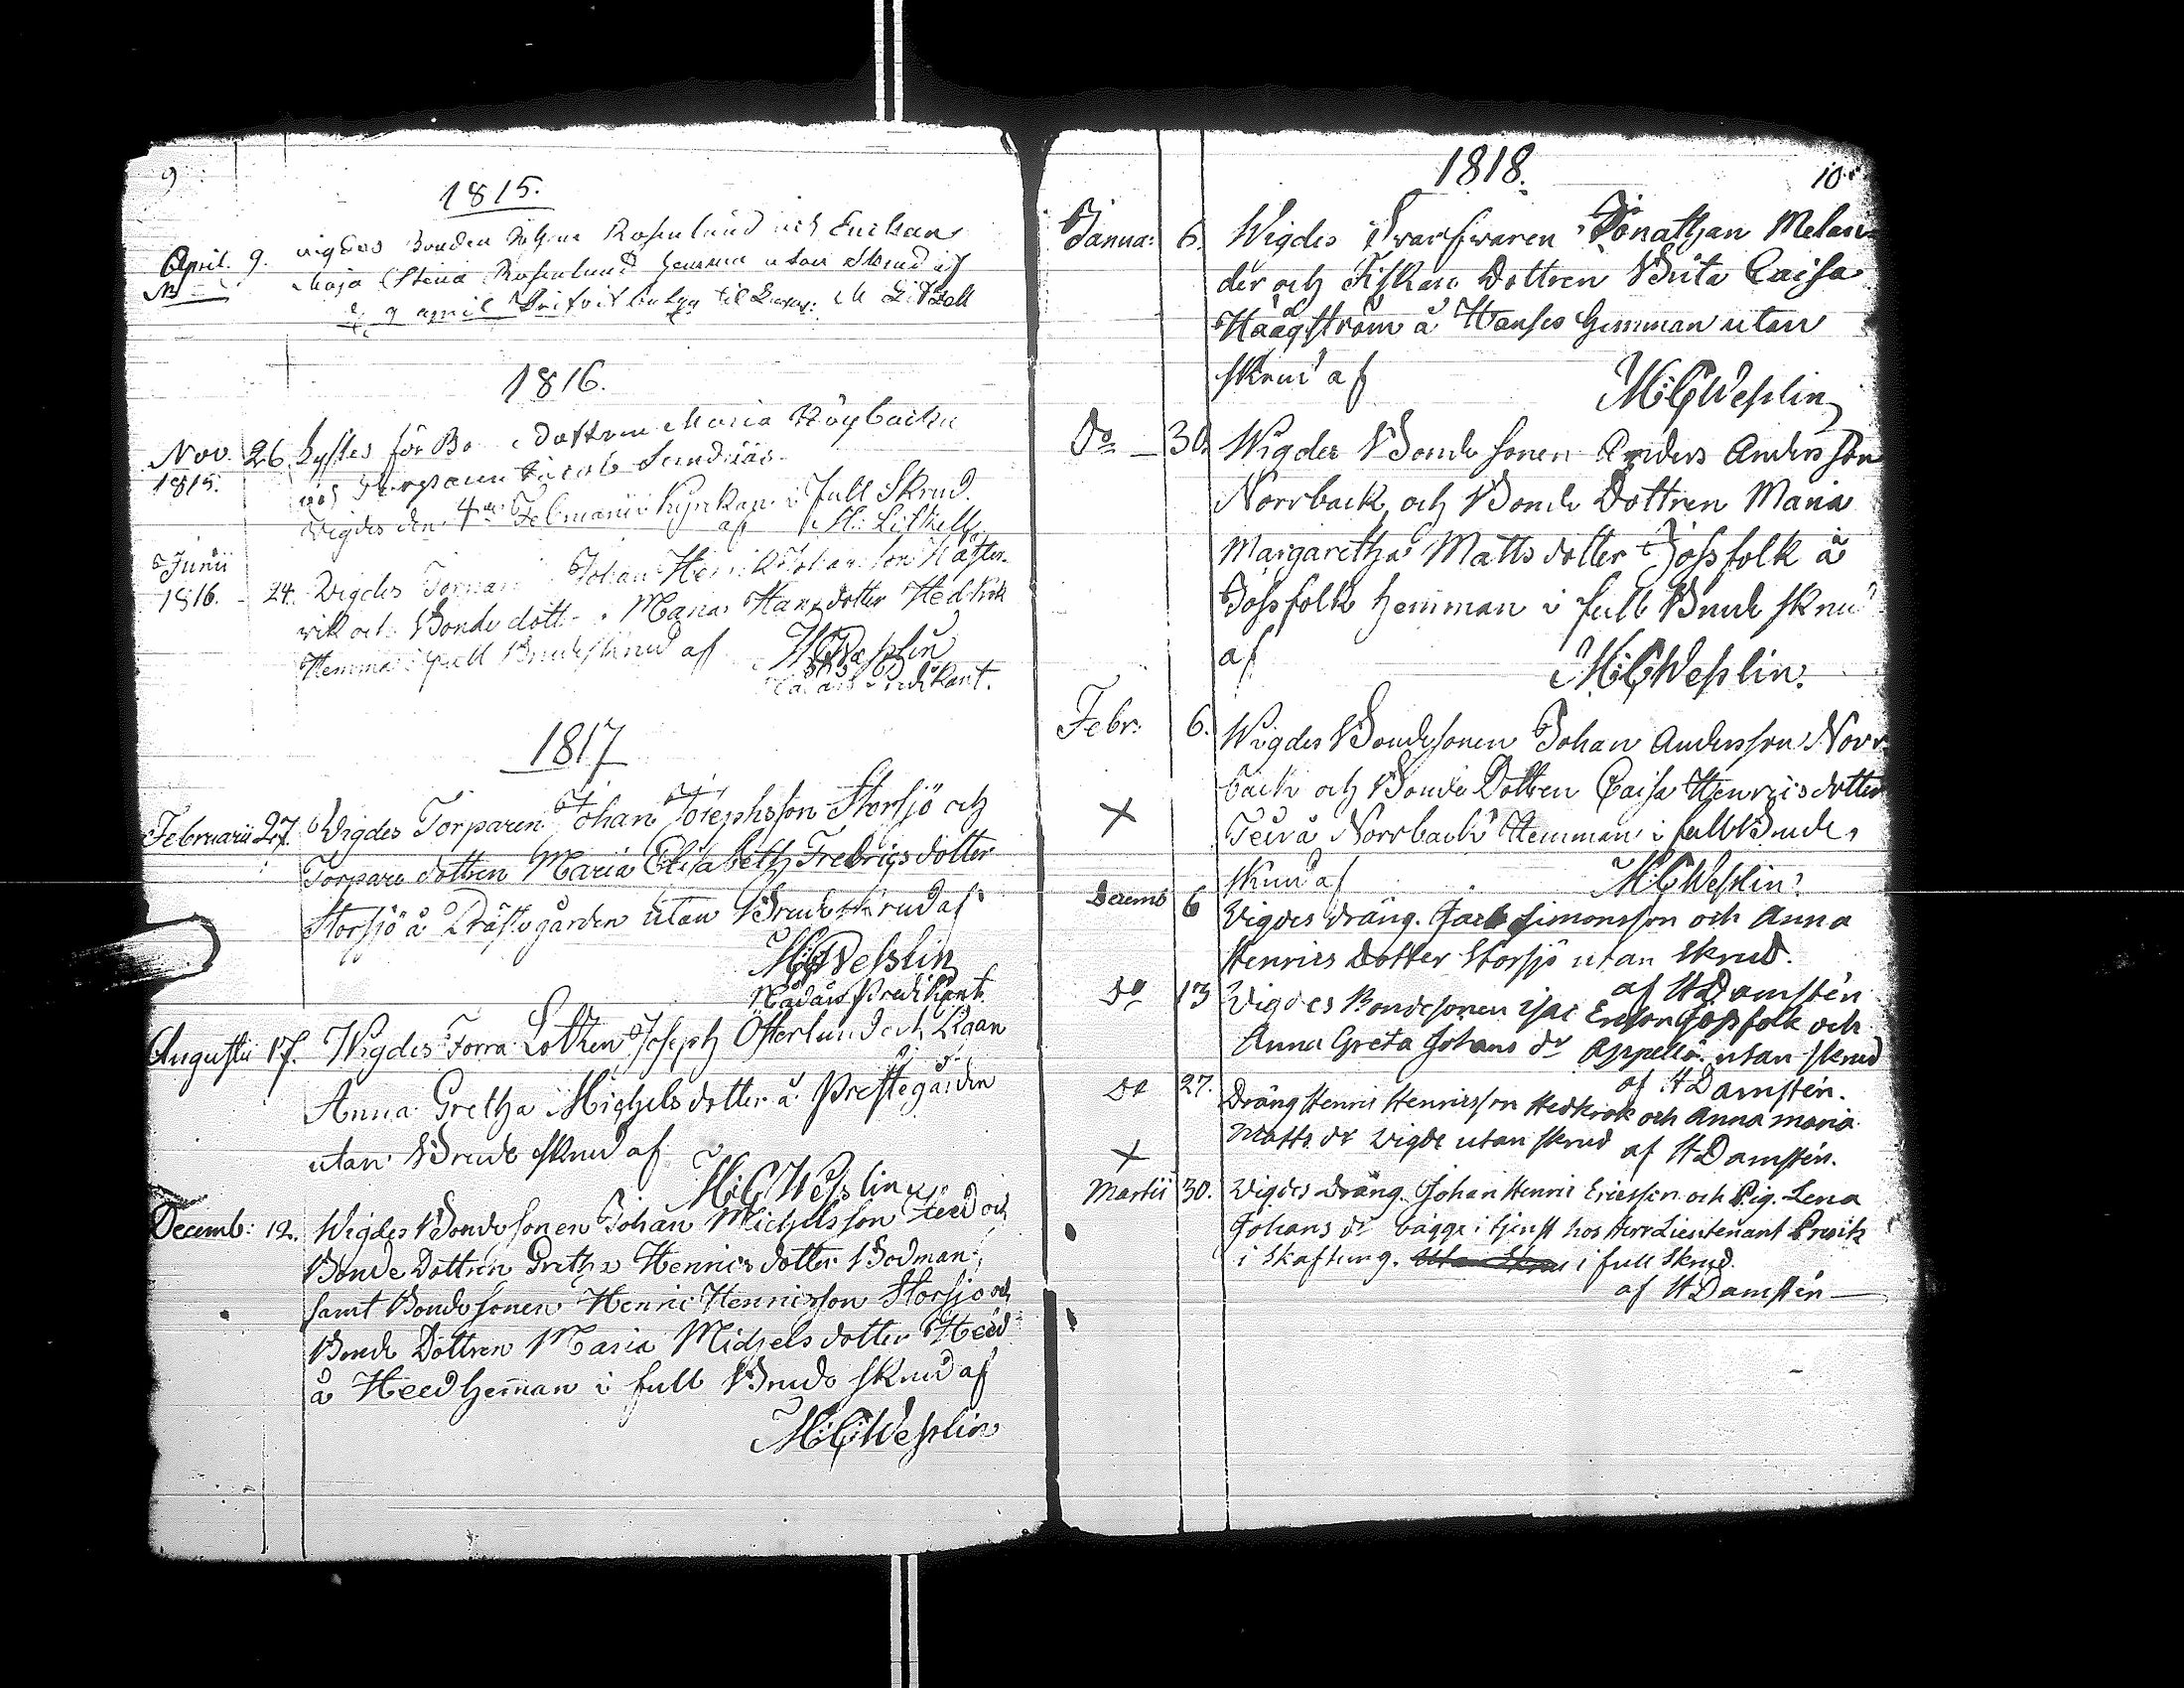 9
1815.
April. 9. vigdes Bonden Johan Rosenlund och Enckan
Maja Stina Rosenlund hemma utan Skrud af
d. 9 april M Lithell
1816.
Nov. 26 Lystes för Bo Dottren Maria Rögbacka
1815. och Torparen Jacob Sundnäs
vigdes den 4de Februarii i Kyrkan i full Skrud.
af M: Lithell
Junii
1816. 24. Vigdes Johan Henrik Johansson Häster-
vik och Bonde dott Maria Hansdotter Hedkrok
Hemma i full Brudeskrud af H:C:Wesslin
Nådårs Predikant.
1817
Februarii 27. Wigdes Torparen Johan Josephsson Storsjö och
Torpare dottren Maria Elisabeth Fredricsdotter
Storsjö å Prästegården utan Brudeskrud af
H:C:Wesslin
Nådårs Predikant.
Augustii 17. Wigdes Torra Joseph Österlund och Pigan
Anna Gretha Michelsdotter å Prestegården
utan Brude skrud af
H:C:Wesslin
Decemb: 12. Wigdes Bondesonen Johan Michelsson Heed och
Bonde Dottren Gretha Henricsdotter Bodman,
samt Bondesonen Henric Henricsson Storsjö och
Bonde Dottren Maria Michelsdotter Heed
å Heed Hemman i full Brude skrud af
H:C:Wesslin
1818.
10.
Janua: 6. Wigdes Svarfvaren Jonathan Melan-
der och Fiskare Dottren Brita Caisa
Häägström å Hanses Hemman utan
skrud af
H:C:Wesslin
Do 30. Wigdes Bonde sonen Anders Andersson
Norrback och Bonde Dottren Maria
Margaretha Mattsdotter Jossfolk å
Jossfolk hemman i full Brude skrud
af
H:C:Wesslin.
Febr: 6. Wigdes Bondesonen Johan Andersson Norr-
back och Bonde Dottren Caisa Henricsdotter
X Teir å Norrback Hemman i full Brude
skrud af H:C:Wesslin.
Decemb 6 Vigdes dräng. Jacob Simonsson och Anna
Henrics Dotter Storsjö utan skrud.
af H Damstén
do 13 Vigdes Bondesonen Isac Ericson Jossfolk och
Anna Greta Johans dr Appellö utan skrud
af H Damstén.
do 27. Dräng Henric Henricsson Hedkrok och Anna Maria
Matts dr Vigde utan skrud af H Damstén.
X
Martii 30. Vigdes dräng. Johan Henric Ericsson och Pig. Lena
Johans dr bägge i tjenst hos Herr Lieutenant
i Skaftung. utan Skrud i full Skrud.
af H Damstén